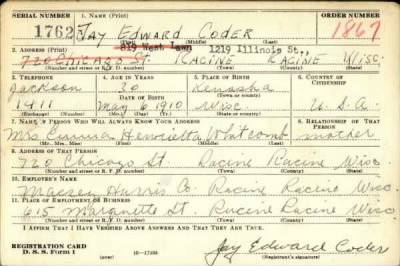 SERIAL NUMBER 1. NAME (Print) ORDER NUMBER
1762 JAY EDWARD CODER 1867
(First) (Middle) (Last)
819 West Lawn 1219 Illinois St.,
2. ADDRESS (Print)
720 CHICAGO ST. RACINE RACINE WISC.
(Number and street or R. F. D. number) (Town) (County) (State)
3. TELEPHONE 4. AGE IN YEARS 5. PLACE OF BIRTH 6. COUNTRY OF CITIZENSHIP
Jackson 30 Kenosha
DATE OF BIRTH (Town or county)
1411 May 6 1910 Wisc. U.S.A.
(Exchange) (Number) (Mo.) (Day) (Yr.) (State or country)
7. NAME OF PERSON WHO WILL ALWAYS KNOW YOUR ADDRESS 8. RELATIONSHIP OF THAT PERSON
Mrs Henrietta Whitcomb mother
(Mr., Mrs., Miss) (First) (Middle) (Last)
9. ADDRESS OF THAT PERSON
720 Chicago St. Racine Racine Wisc
(Number and street or R. F. D. number) (Town) (County) (State)
10. EMPLOYER'S NAME
Harris Co. Racine Racine Wisc.
11. PLACE OF EMPLOYMENT OR BUSINESS
615 Marquette St. Racine Racine Wisc.
(Number and street or R. F. D. number) (Town) (County) (State)
I AFFIRM THAT I HAVE VERIFIED ABOVE ANSWERS AND THAT THEY ARE TRUE.
REGISTRATION CARD
D. S. S. Form 1 (over) 16—17105 Jay Edward Coder
(Registrant's signature)